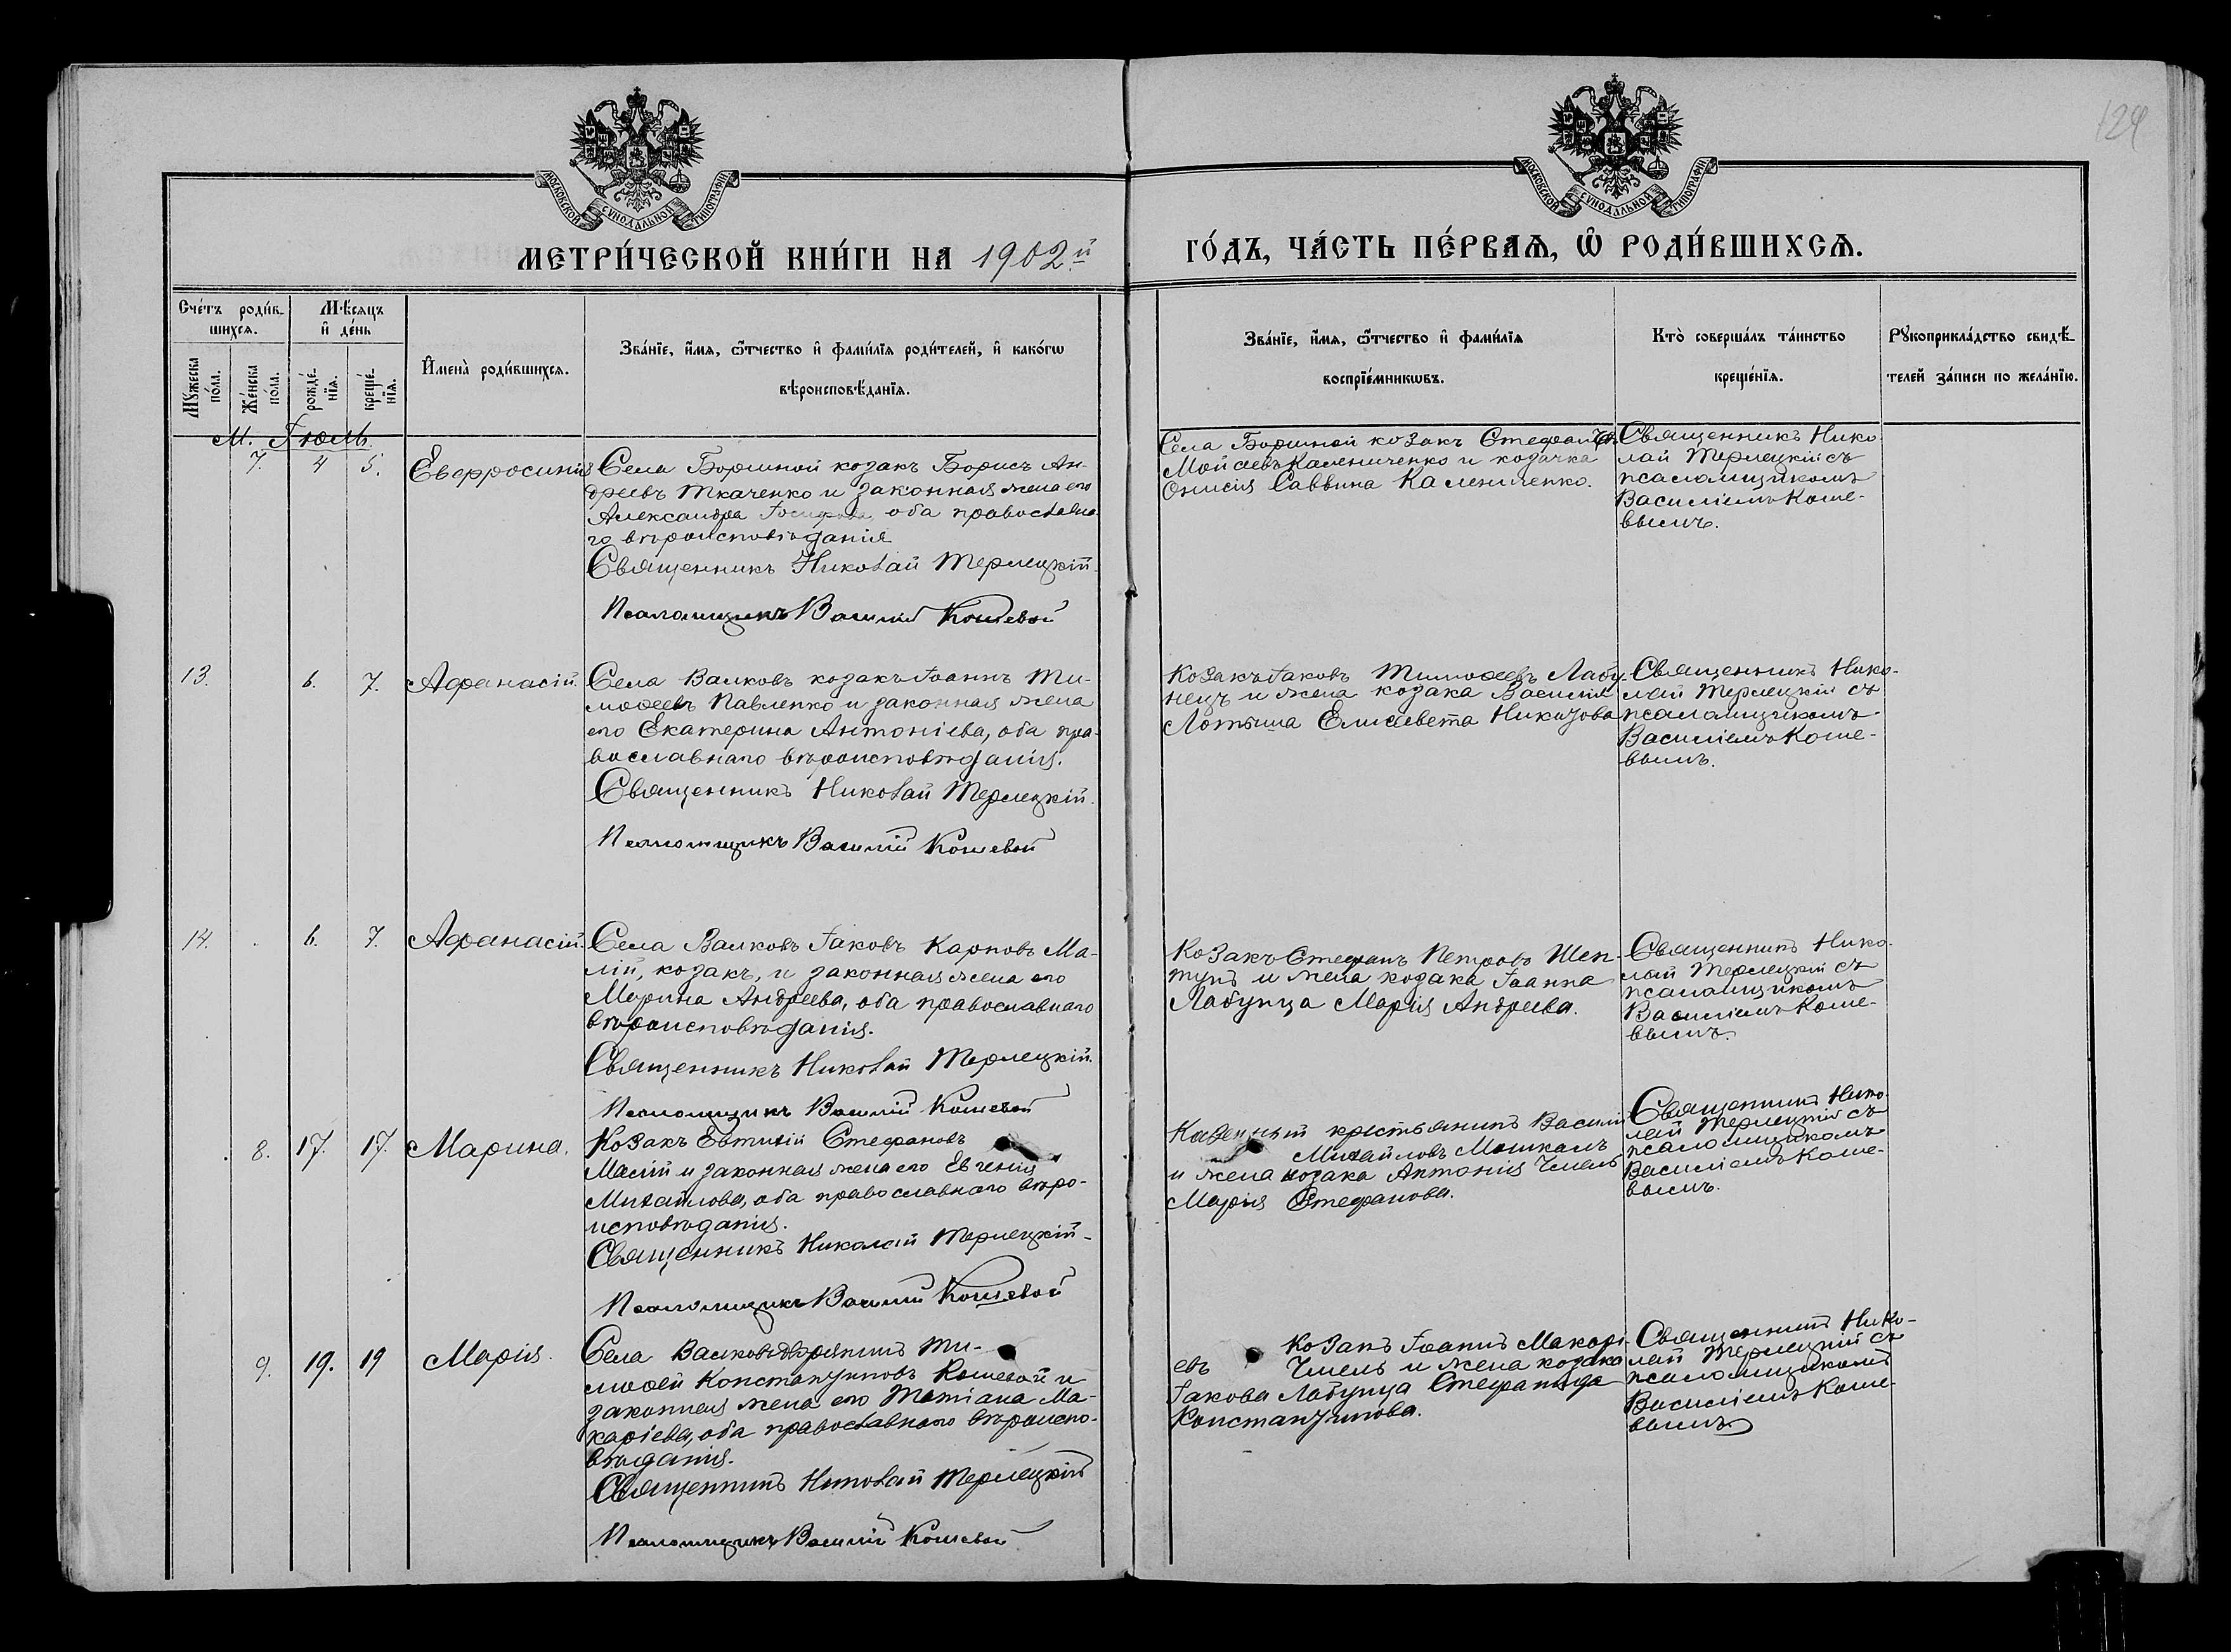 124
МОСКОВСКОЙ СѴНОДАЛЬНОЙ ТИПОГРАФІИ
МОСКОВСКОЙ СѴНОДАЛЬНОЙ ТИПОГРАФІИ
МЕТРИ́ЧЕСКОЙ КНИ́ГИ НА 1902й
ГО́ДЪ, ЧА́СТЬ ПЕ́РВАЯ, Ѿ РОДИ́ВШИХСЯ.
Сче́тъ роди́в-
шихся.
Мꙋ́жеска по́ла.
Же́нска по́ла.
Мѣ́сяцъ
и҆ де́нь
рожде́-
нїя.
креще́-
нїя.
И҆мена̀ роди́вшихся.
Зва́нїе, и҆́мя, ѻ҆́тчество и҆ фами́лїя роди́телей, и҆ како́гѡ
вѣроисповѣ́данїя.
Зва́нїе, и҆́мя, ѻ҆́тчество и҆ фами́лїя
воспрїе́мникѡвъ.
Кто̀ соверша́лъ та́инство
креще́нїя.
Рꙋкоприкла́дство свидѣ́-
телей за́писи по жела́нїю.
М. Іюль.
7. 4 5. Евфросинія
Села Боршной козакъ Борисъ Ан-
дреевъ Ткаченко и законная жена его
Александра Іосифова, оба православна
го вѣроисповѣданія
Священникъ Николай Терлецкій.
Псаломщикъ Василій Кошевой
Села Боршной козакъ Стефанъ
Мойсеевъ Калениченко и козачка
Онисія Саввина Калениченко.
Священникъ Нико
лай Терлецкій съ
псаломщикомъ
Василіемъ Коше-
вымъ.
13. 6. 7. Афанасій.
Села Валковъ козакъ Іоаннъ Ти-
моѳеевъ Павленко и законная жена
его Екатерина Антоніева, оба пра-
вославнаго вѣроисповѣданія.
Священникъ Николай Терлецкій.
Псаломщикъ Василій Кошевой
Козакъ Іаковъ Тимоѳеевъ Лабу-
нецъ и жена козака Василія
Лотыша Елисавета Никитова
Священникъ Нико-
лай Терлецкій съ
псаломщикомъ
Василіемъ Коше-
вымъ.
14. 6. 7. Афанасій.
Села Валковъ Іаковъ Карповъ Ма-
лій, козакъ, и законная жена его
Марина Андреева, оба православнаго
вѣроисповѣданія.
Священникъ Николай Терлецкій.
Псаломщикъ Василій Кошевой
Козакъ Стефанъ Петровъ Шеп-
тунъ и жена козака Іоанна
Лабунца Марія Андреева.
Священникъ Нико-
лай Терлецкій съ
псаломщикомъ
Василіемъ Коше-
вымъ.
8. 17. 17. Марина.
Козакъ Евтихій Стефановъ
Малій и законная жена его Евгенія
Михайлова, оба православнаго вѣро-
исповѣданія.
Священникъ Николай Терлецкій.
Псаломщикъ Василій Кошевой
Казенный крестьянинъ Василій
Михайловъ Мошкаль
и жена козака Антонія Чмель
Марія Стефанова.
Священникъ Нико-
лай Терлецкій съ
псаломщикомъ
Василіемъ Коше-
вымъ.
9. 19. 19 Марія.
Села Валковъ дворянинъ Ти-
моѳей Константиновъ Кошевой и
законная жена его Татіана Ма-
каріева, оба православнаго вѣроиспо-
вѣданія.
Священникъ Николай Терлецкій
Псаломщикъ Василій Кошевой
Козакъ Іоаннъ Макарі-
евъ Чмель и жена козака
Іакова Лабунца Стефанида
Константинова.
Священникъ Нико-
лай Терлецкій съ
псаломщикомъ
Василіемъ Коше-
вымъ